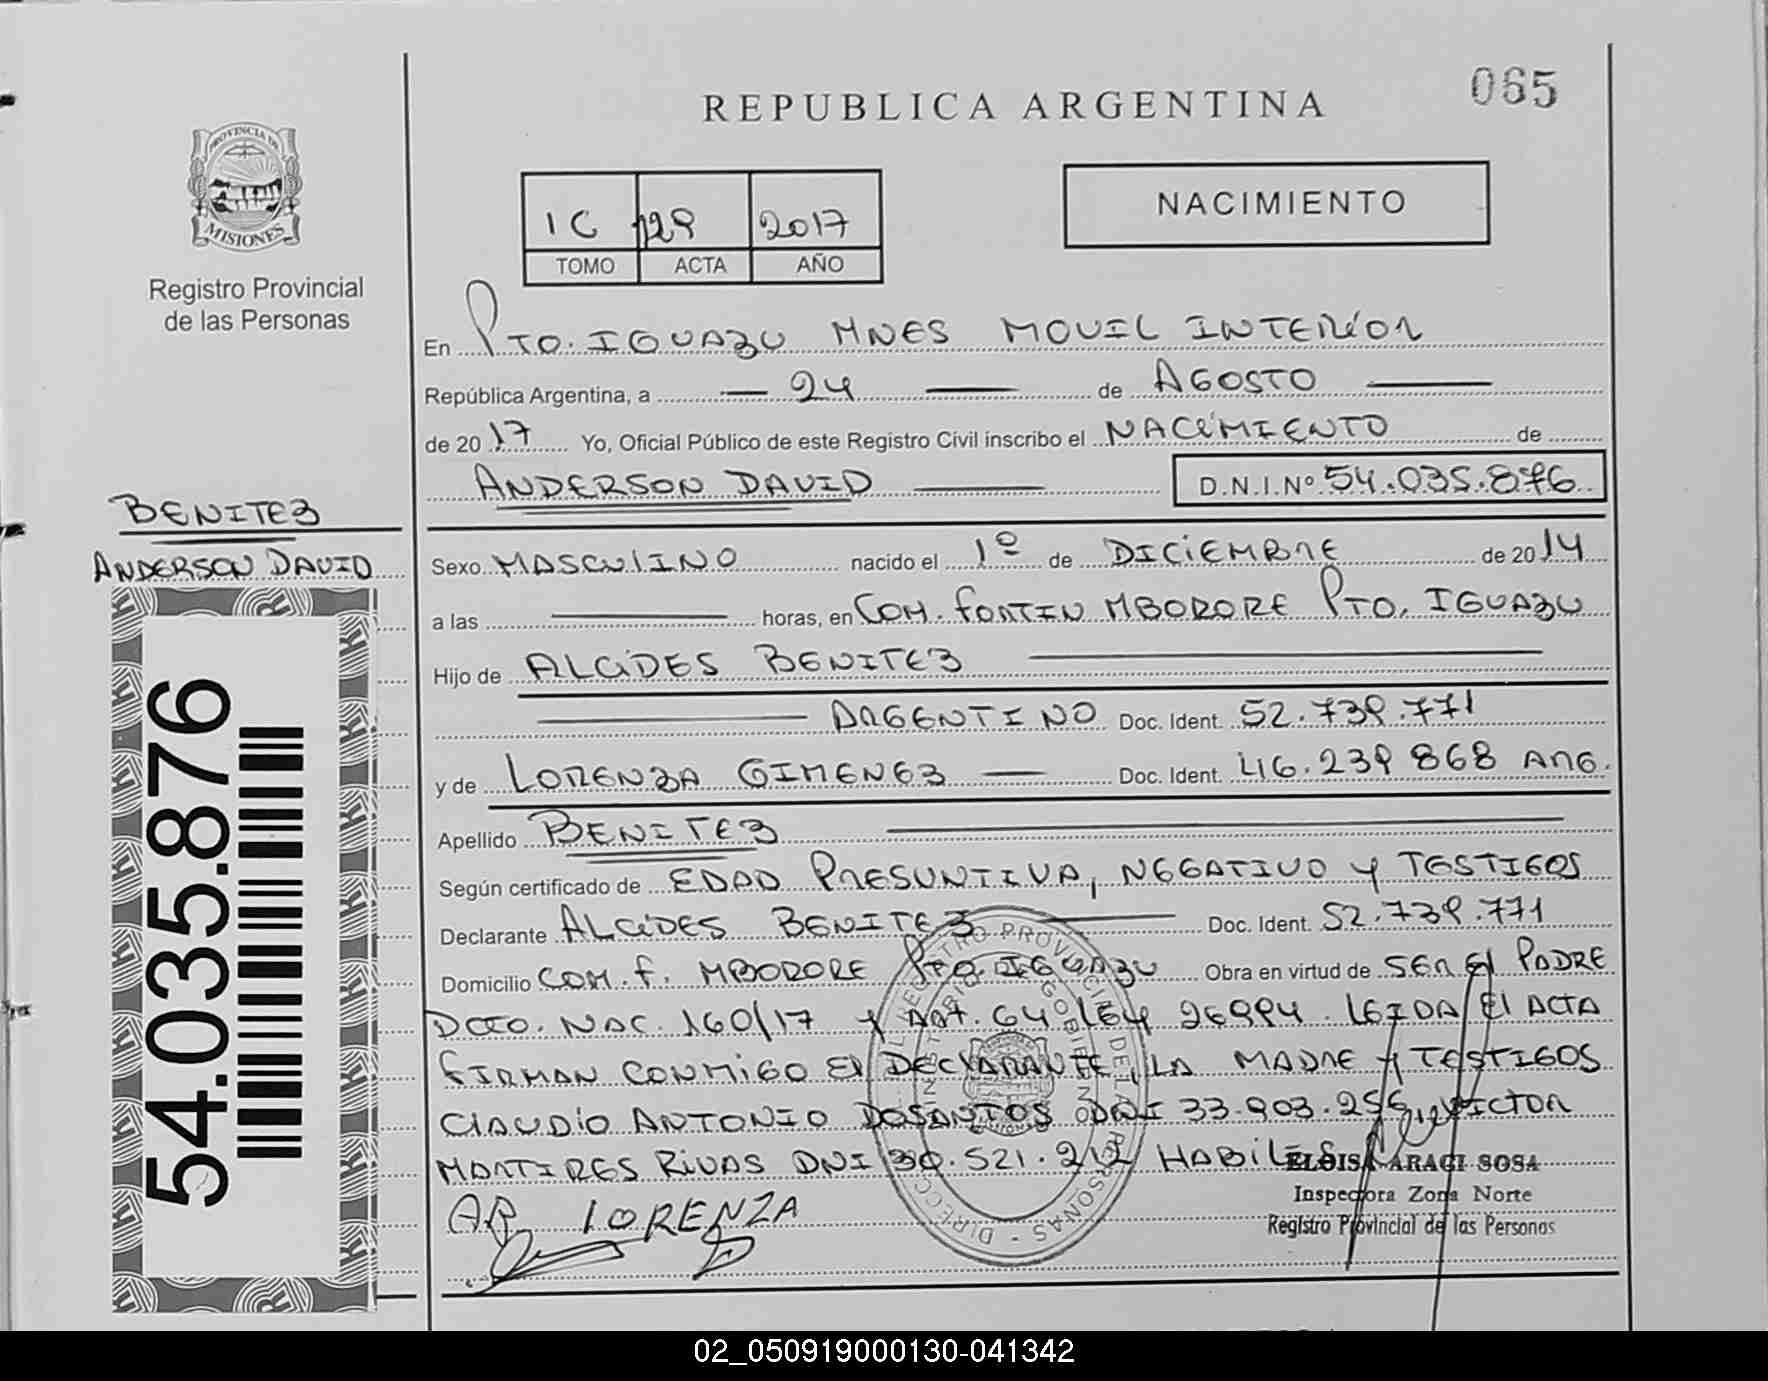 065
REPUBLICA ARGENTINA
PROVINCIA DE
MISIONES
Registro Provincial
de las Personas
1C 129 2017
TOMO ACTA AÑO
NACIMIENTO
En PTO. IGUAZU MNES MOVIL INTERIOR
República Argentina, a — 24 — de AGOSTO —
de 2017 Yo, Oficial Público de este Registro Civil inscribo el NACIMIENTO de
ANDERSON DAVID — D.N.I.Nº 54.035.876
BENITEZ
ANDERSON DAVID
54.035.876
Sexo MASCULINO nacido el 1º de DICIEMBRE de 2014
a las — horas, en COM. FORTIN MBORORE PTO. IGUAZU
Hijo de ALCIDES BENITEZ —
— ARGENTINO Doc. Ident. 52.739.771
y de LORENZA GIMENEZ — Doc. Ident. 46.239 868 ARG.
Apellido BENITEZ —
Según certificado de EDAD PRESUNTIVA, NEGATIVO Y TESTIGOS
Declarante ALCIDES BENITEZ — Doc. Ident. 52.739.771
Domicilio COM. F. MBORORE PTO. IGUAZU Obra en virtud de SER El PADRE
DCTO. NAC. 160/17 Y ART. 64 LEY 26994. LEIDA El ACTA
FIRMAN CONMIGO El DEClARANTE, LA MADRE Y TESTIGOS
ClAUDIO ANTONIO DOSANTOS DNI 33.903.255, VICTOR
MARTIRES RIVAS DNI 30.521.212 HABILES
ELOISA ARACI SOSA
Inspectora Zona Norte
Registro Provincial de las Personas
AB LORENZA
02_050919000130-041342